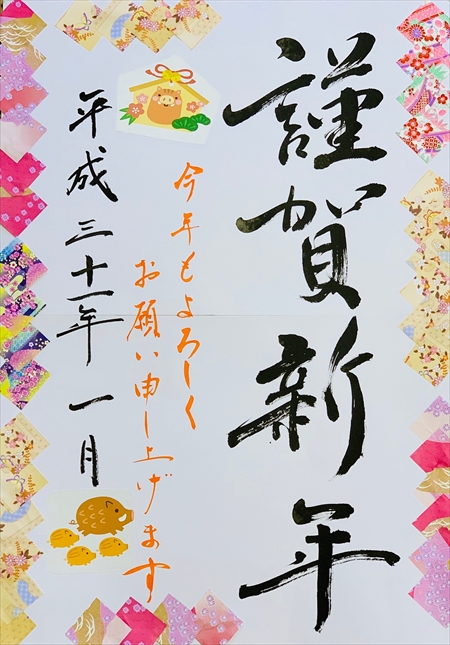 謹賀新年
今年もよろしく
お願い申し上げます
平成三十一年 一月